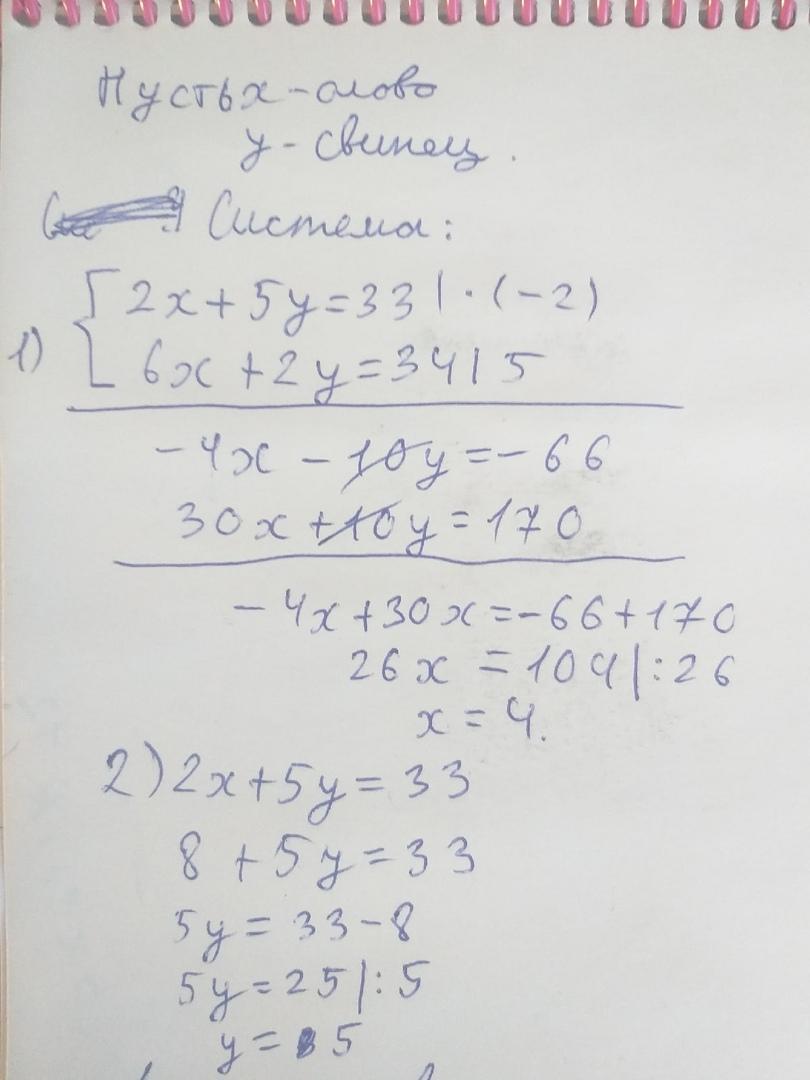 Пусть x - олово
y - свинец.
Система:
1) { 2x + 5y = 33 | · (-2)
6x + 2y = 34 | 5
-4x - 10y = -66
30x + 10y = 170
-4x + 30x = -66 + 170
26x = 104 | : 26
x = 4.
2) 2x + 5y = 33
8 + 5y = 33
5y = 33 - 8
5y = 25 | : 5
y = 5